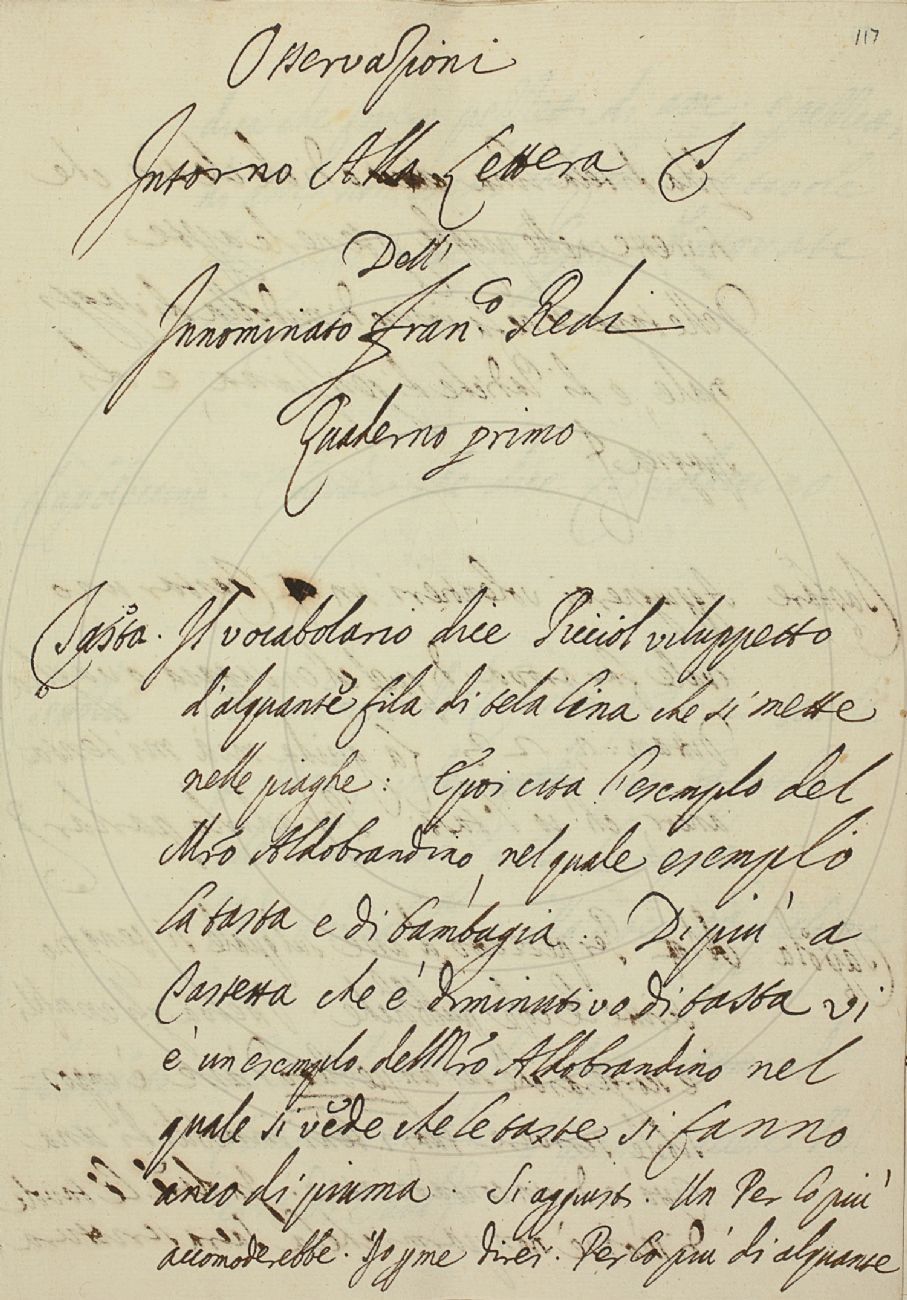 117
Osservazioni
Intorno Alla Lettera T
Dell'
Innominato Fran.co Redi
Quaderno primo
Tasta. Il vocabolario dice Picciol viluppetto
d'alquante fila di tela lina che si mette
nelle piaghe: E poi cita l'esemplo del
Mro Aldobrandino, nel quale esemplo
la tasta e di bambagia. Di più a
Tastetta che è diminutivo di tasta vi
è un esemplo del Mro Aldobrandino nel
quale si vede che le taste si fanno
anco di piuma. Si aggiusti. Un Per lo più
accomoderebbe. Io p me direi. Per lo più di alquante